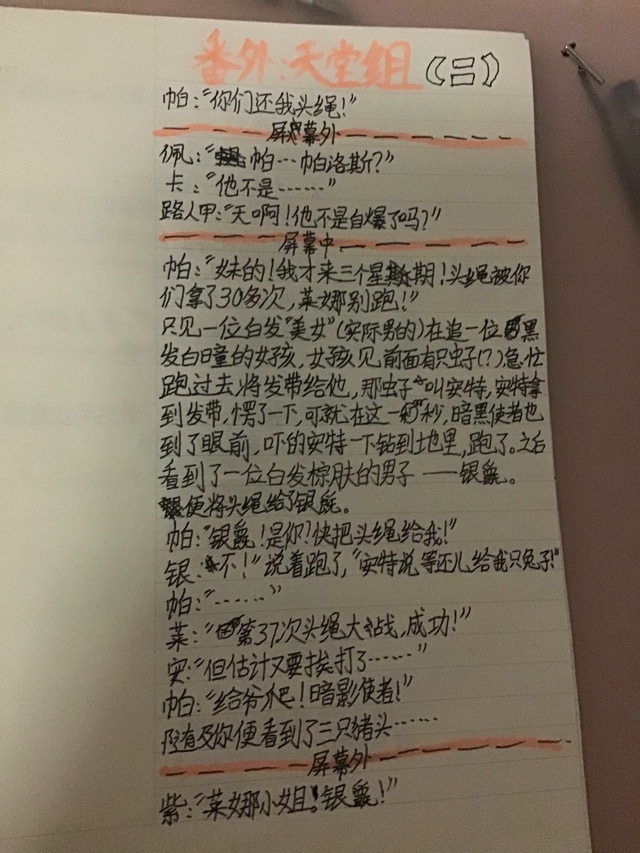 番外:天堂组(二)
帕:“你们还我头绳!”
屏幕外
佩:“帕…帕洛斯?”
卡:“他不是……”
路人甲:“天啊!他不是自爆了吗?”
屏幕中
帕:“妹的!我才来三个星期!头绳被你
们拿了30多次,莱娜别跑!”
只见一位白发“美女”(实际男的)在追一位黑
发白瞳的女孩,女孩见前面有只虫子(?)急忙
跑过去,将发带给他,那虫子叫安特,安特拿
到发带,愣了一下,可就在这一秒,暗黑使者也
到了眼前,吓的安特一下钻到地里,跑了。之后
看到了一位白发棕肤的男子——银毫。
便将头绳给了银毫。
帕:“银毫!是你?快把头绳给我!”
银:“不!”说着跑了,“安特说等还儿给我只兔子!”
帕:“……”
莱:“第37次头绳大战,成功!”
安:“但估计又要挨打了……”
帕:“给爷爬!暗影使者!”
你便看到了三只猪头……
屏幕外
紫:“莱娜小姐!银毫!”